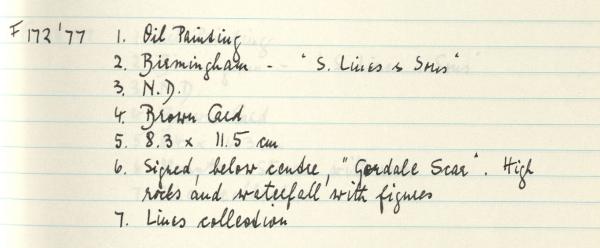 F172'77 1. Oil Painting
2. Birmingham - "S. Lines & Sons"
3. N.D.
4. Brown Card
5. 8.3 x 11.5 cm
6. Signed, below centre, "Gordale Scar". High
rocks and waterfall with figures
7. Lines collection